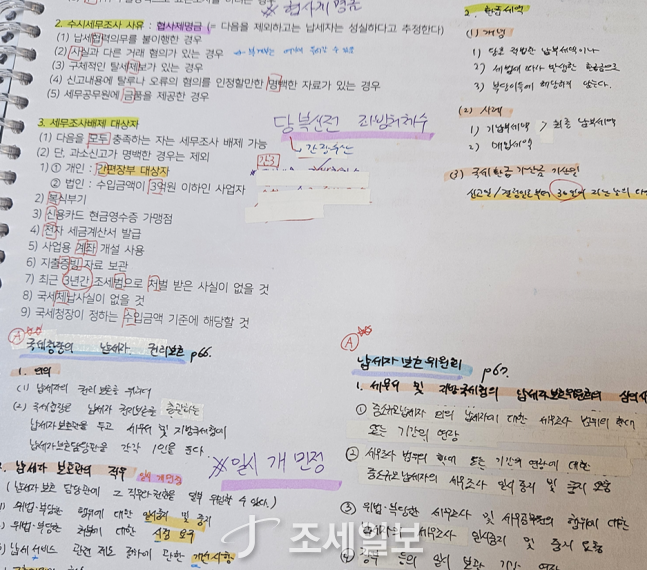 ※ 협사제명은
2. 수시세무조사 사유 : 협사제명금 (= 다음을 제외하고는 납세자는 성실하다고 추정한다)
(1) 납세협력의무를 불이행한 경우
(2) 사실과 다른 거래 혐의가 있는 경우
(3) 구체적인 탈세제보가 있는 경우
(4) 신고내용에 탈루나 오류의 혐의를 인정할만한 명백한 자료가 있는 경우
(5) 세무공무원에 금품을 제공한 경우
3. 세무조사배제 대상자
(1) 다음을 모두 충족하는 자는 세무조사 배제 가능
(2) 단, 과소신고가 명백한 경우는 제외
1) ① 개인 : 간편장부 대상자
② 법인 : 수입금액이 3억원 이하인 사업자
2) 복식부기
3) 신용카드 현금영수증 가맹점
4) 전자 세금계산서 발급
5) 사업용 계좌 개설 사용
6) 지출증빙 자료 보관
7) 최근 3년간 조세범으로 처벌 받은 사실이 없을 것
8) 국세체납사실이 없을 것
9) 국세청장이 정하는 수입금액 기준에 해당할 것
간3
2. 환급세액
(1) 개념
1) 당초 적법한 납부세액이나
2) 세법에 따라 발생한 환급금으로
3) 부당이득에 해당하지 않는다.
(2) 사례
1) 기납부세액 > 최종 납부세액
2) 매입세액
(3) 국세환급가산금 기산일
30일이 지나는 날의 다
A
국세청장의 납세자 권리보호 p66.
1. 의의
(1) 납세자의 권리보호를 위하여
(2) 국세청장은 납세자
납세자보호관을 두고 세무서 및 지방국세청에
납세자보호담당관을 각각 1인을 둔다.
2. 납세자 보호관의 직무 일시개명정
(납세자 보호 담당관에 그 직무와 권한을 일부 위임할 수 있다.)
위법·부당한 행위에 대한 일시중지 및 중지
위법·부당한 처분에 대한 시정 요구
납세 서비스 관련 제도 절차에 관한 개선사항
※ 일시 개 명정
A
납세자보호위원회 p67.
1. 세무서 및 지방국세청의 납세자보호위원회의 심의사
① 중소규모납세자 외의 납세자에 대한 세무조사 범위의 확대
또는 기간의 연장
② 세무조사 범위의 확대 또는 기간의 연장에 대한
중소규모 납세자의 세무조사 일시중지 및 중지 요청
③ 위법·부당한 세무조사 및 세무공무원의 행위에 대한
납세자의 세무조사 일시중지 및 중지 요청
④ 장부 등의 일시 보관 기간 연장
조세일보